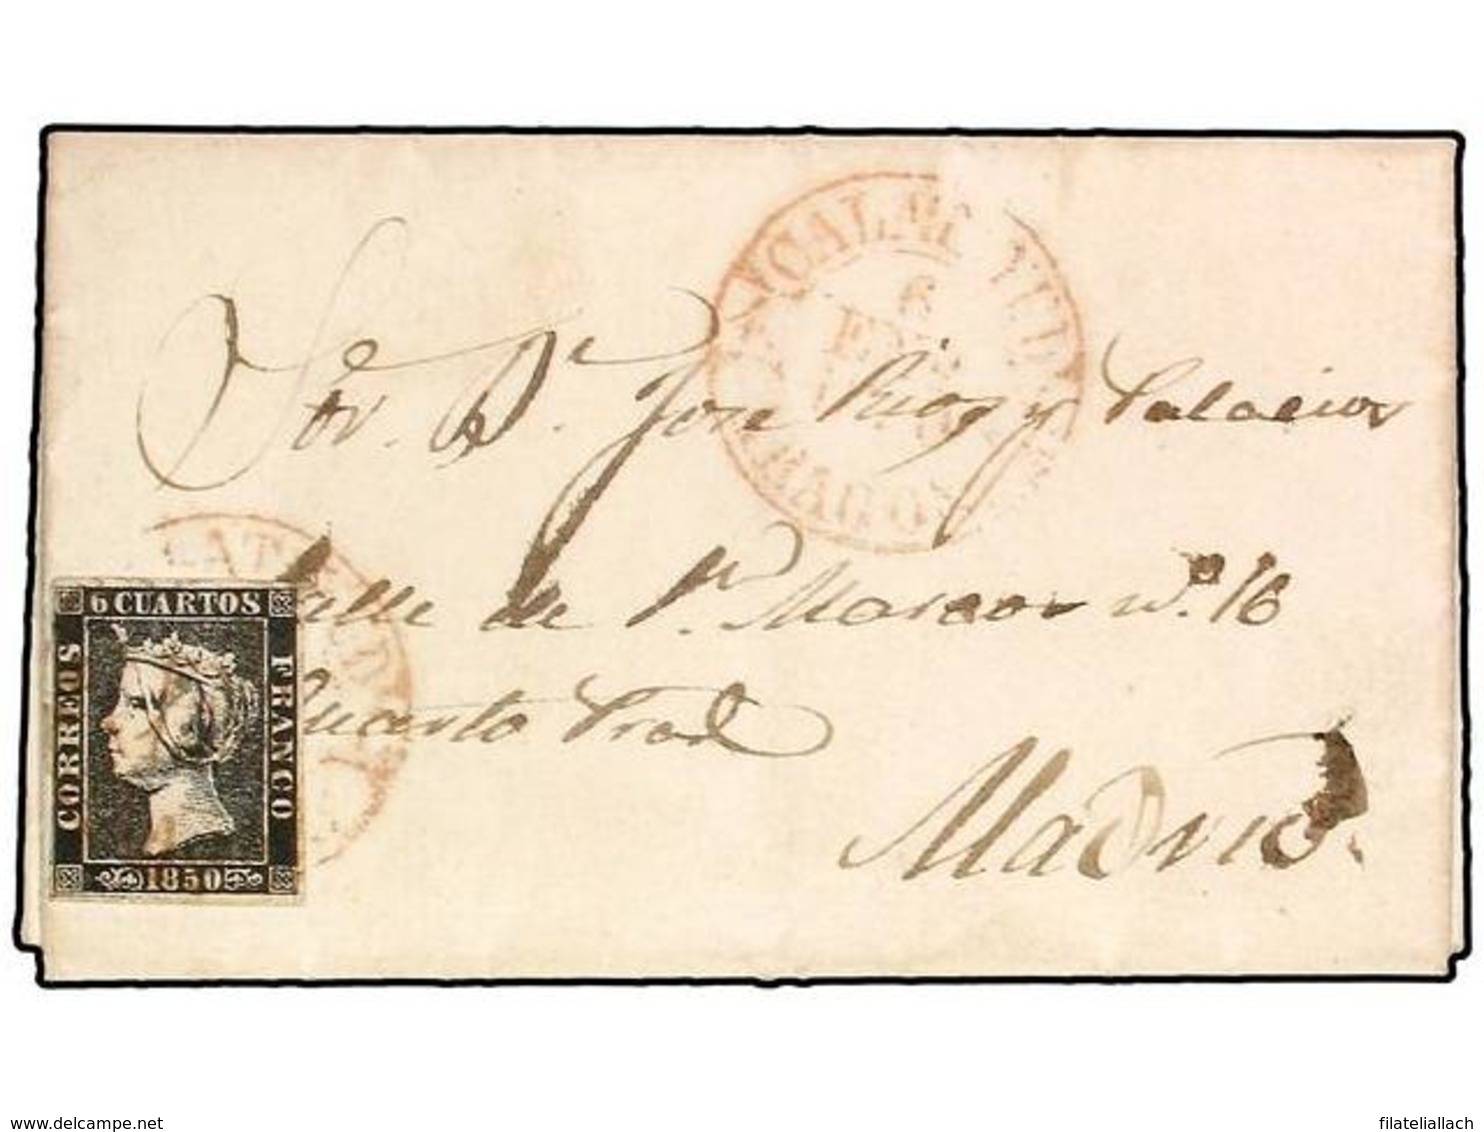 6
Sor. Dn. Jose Rios y Palacios
Calle de Sn. Marcos nº. 16
Quarto Pral
Madrid.
6 CUARTOS
CORREOS
FRANCO
1850
delcampe.net
filateliallach